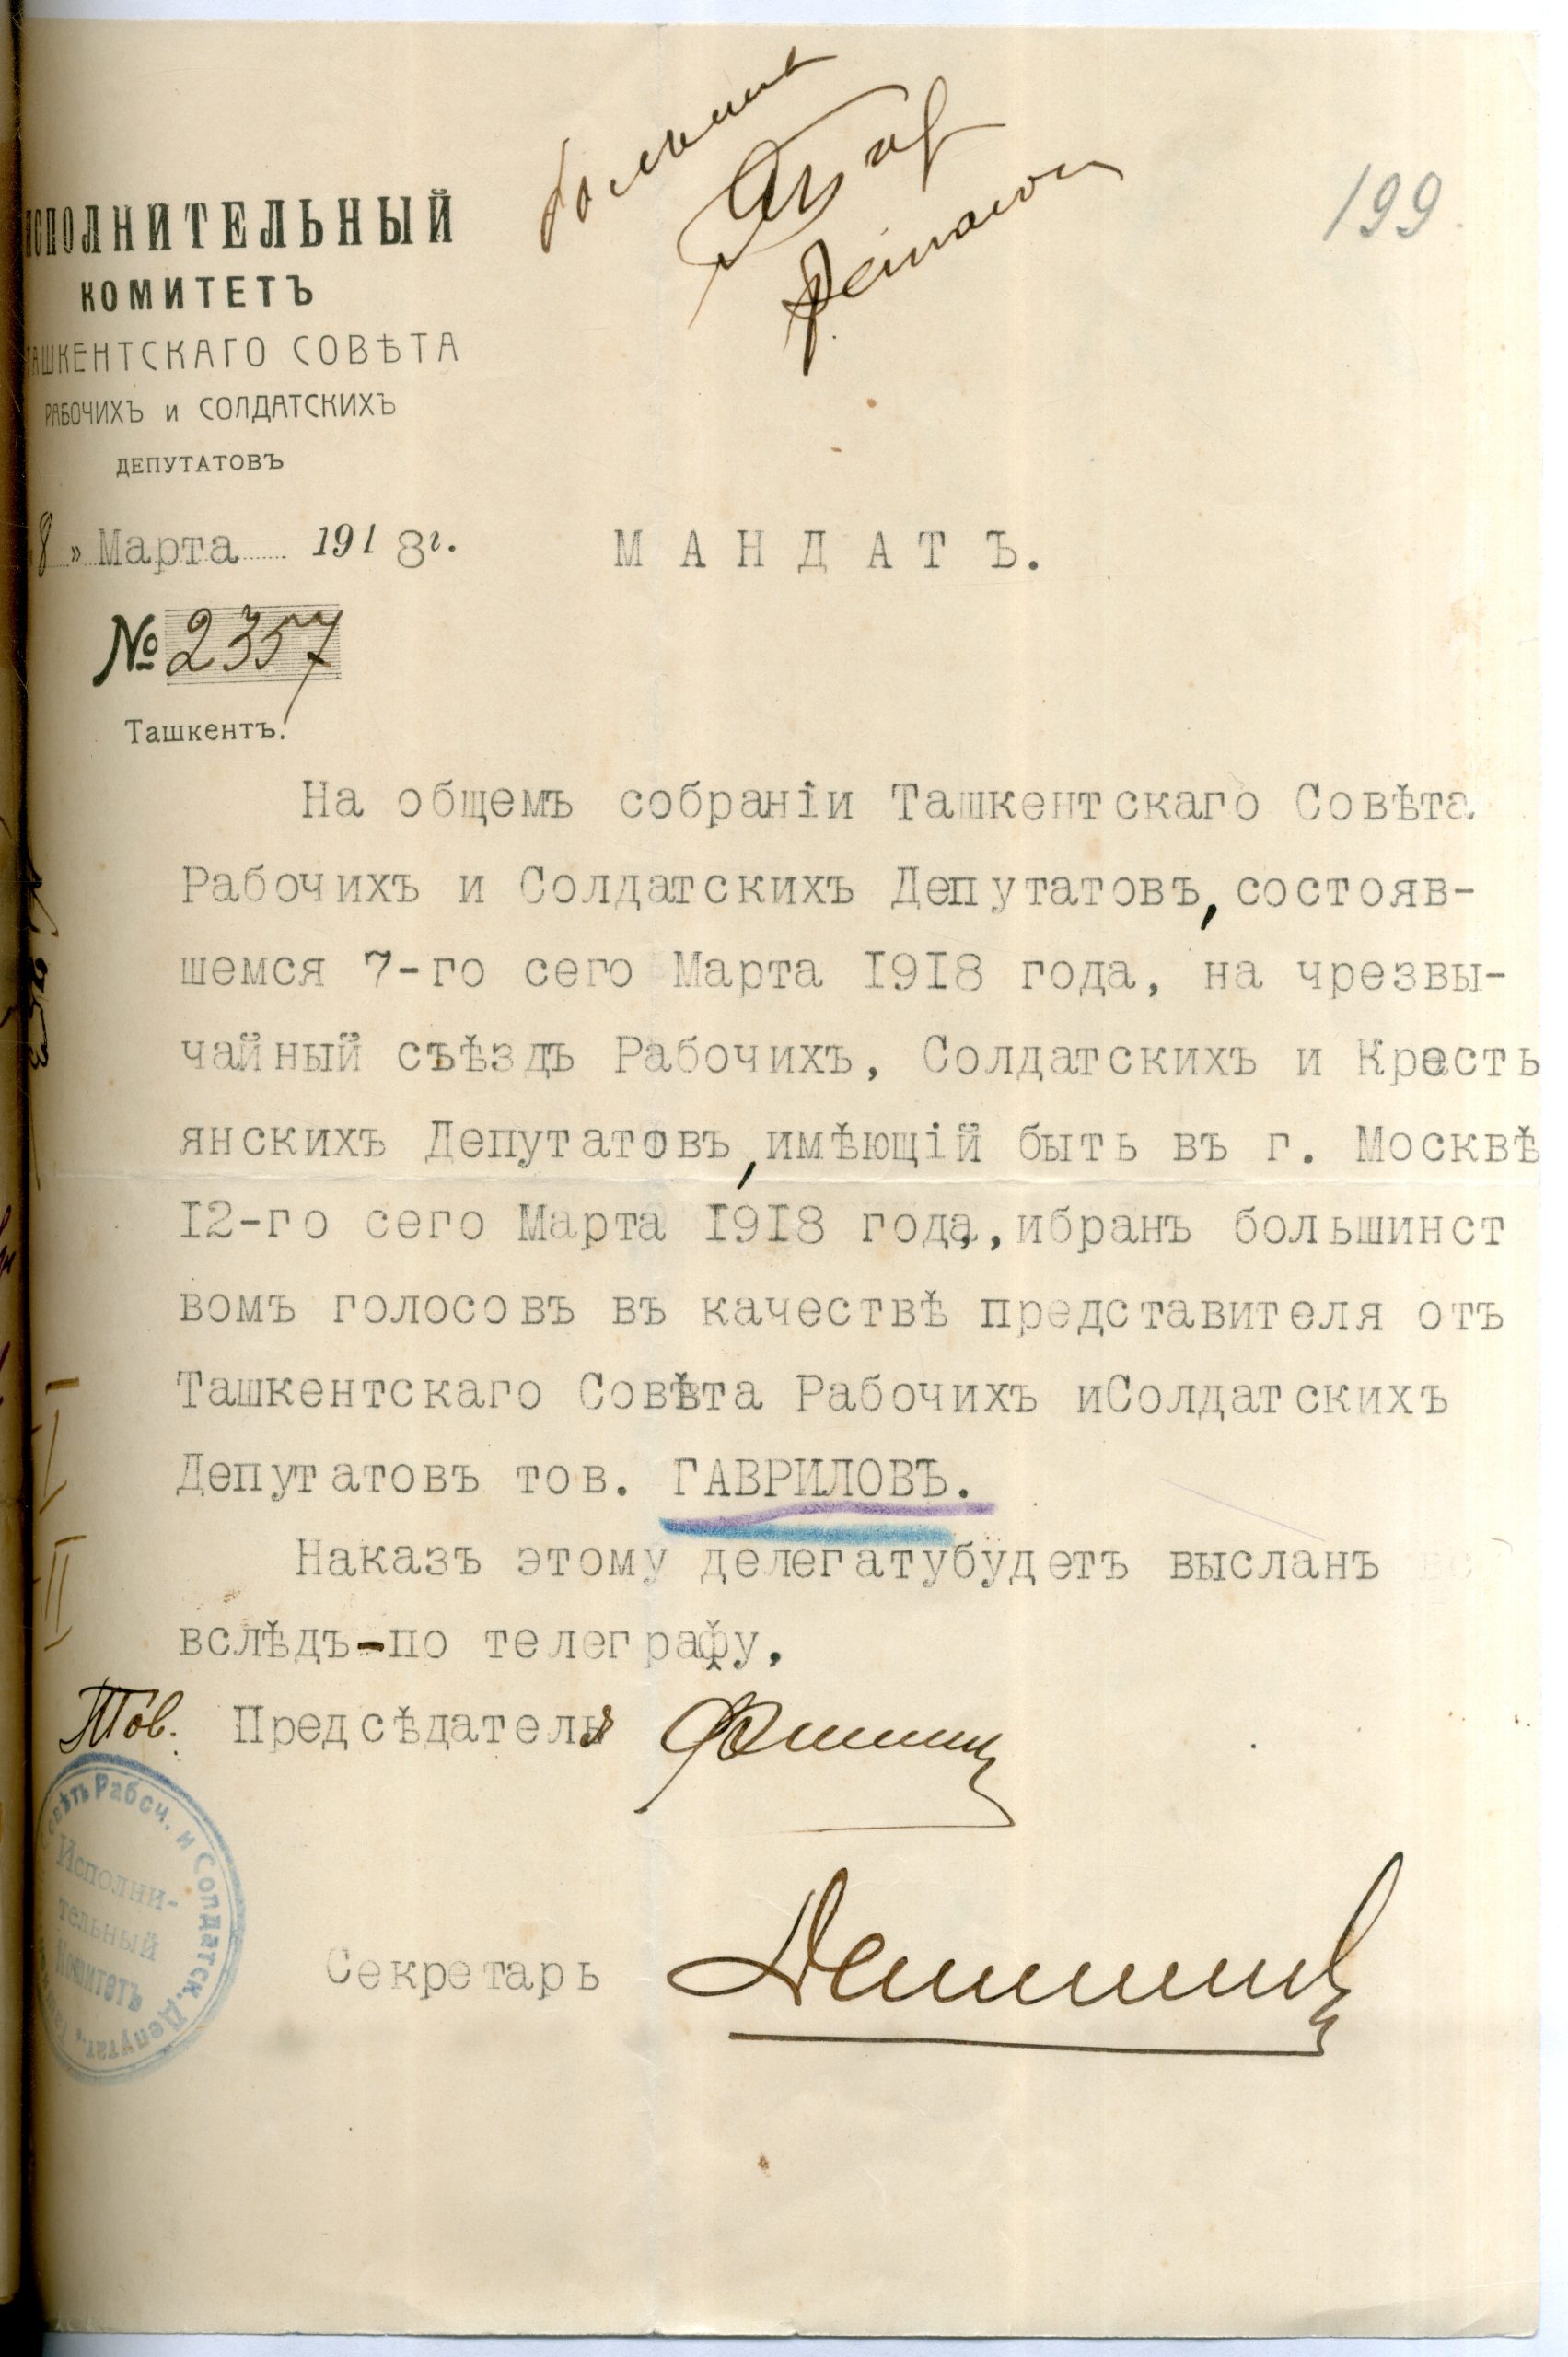 199
ИСПОЛНИТЕЛЬНЫЙ
КОМИТЕТЪ
ТАШКЕНТСКАГО СОВѢТА
РАБОЧИХЪ и СОЛДАТСКИХЪ
ДЕПУТАТОВЪ
8 » Марта 1918г.
МАНДАТЪ.
№ 2357
Ташкентъ.
На общемъ собраніи Ташкентскаго Совѣта
Рабочихъ и Солдатскихъ Депутатовъ, состояв-
шемся 7-го сего Марта 1918 года, на чрезвы-
чайный съѣздъ Рабочихъ, Солдатскихъ и Кресть
янскихъ Депутатовъ, имѣющій быть въ г. Москвѣ
12-го сего Марта 1918 года, ибранъ большинст
вомъ голосовъ въ качествѣ представителя отъ
Ташкентскаго Совѣта Рабочихъ иСолдатскихъ
Депутатовъ тов. ГАВРИЛОВЪ.
Наказъ этому делегатубудетъ высланъ
вслѣдъ-по телеграфу.
Тов. Предсѣдателя
Секретарь
Рабоч. и Солдатск. Депутат.
Исполни-
тельный
Комитетъ
I
II